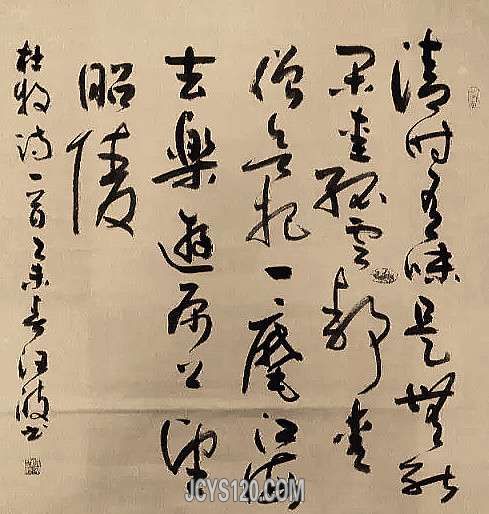 清时有味是無能
闲爱孤雲靜爱
僧欲把一麾江海
去樂遊原上望
昭陵
杜牧诗一首乙未春汪波书
JCYS120.COM